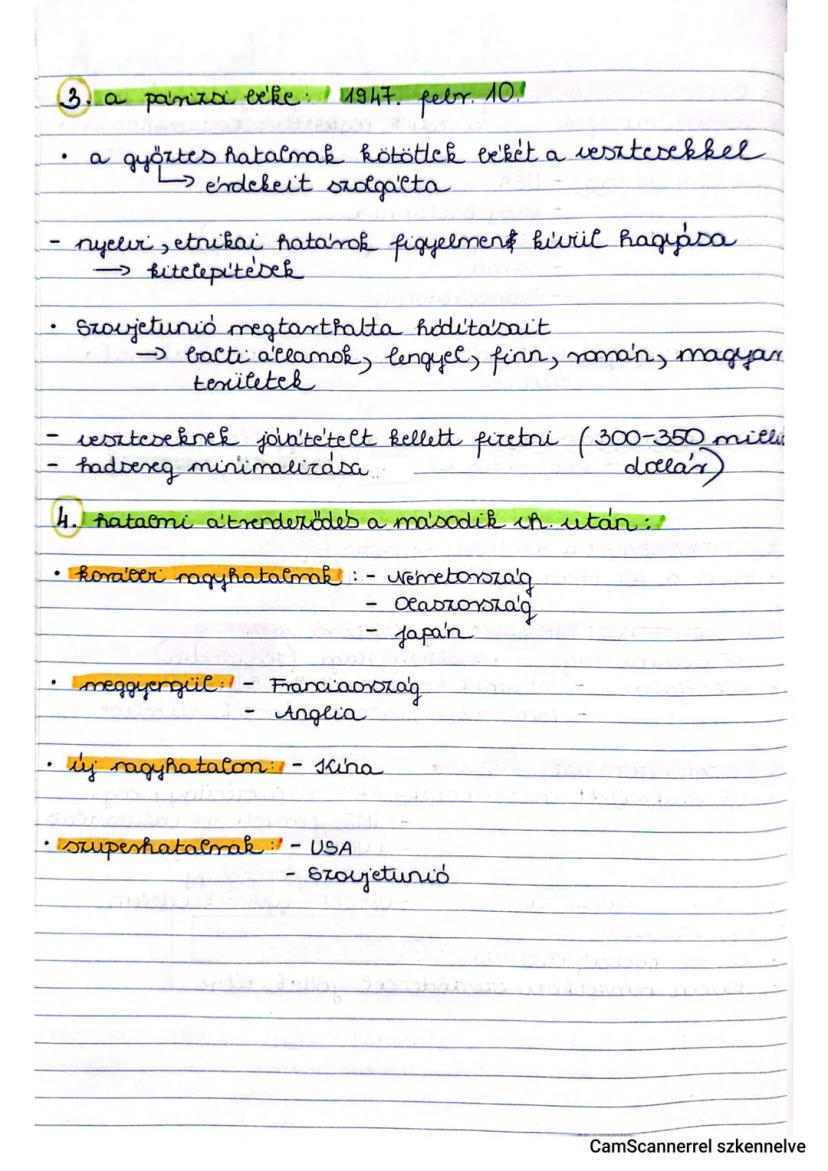 3. a párizsi béke: 1947. febr. 10.
• a győztes hatalmak kötöttek békét a vesztesekkel
↳ érdekeit szolgálta
- nyelvi, etnikai határok figyelmen kívül hagyása
→ kitelepítések
• Szovjetunió megtarthatta hódításait
→ balti államok, lengyel, finn, román, magyar
területek
- veszteseknek jóvátételt kellett fizetni (300-350 milli
- hadsereg minimalizása dollár)
4. hatalmi átrendeződés a második vh. után:
• korábbi nagyhatalmak: - Németország
- Olaszország
- Japán
• meggyengül: - Franciaország
Anglia
• új nagyhatalom: - Kína
• szuperhatalmak: - USA
- Szovjetunió
CamScannerrel szkennelve